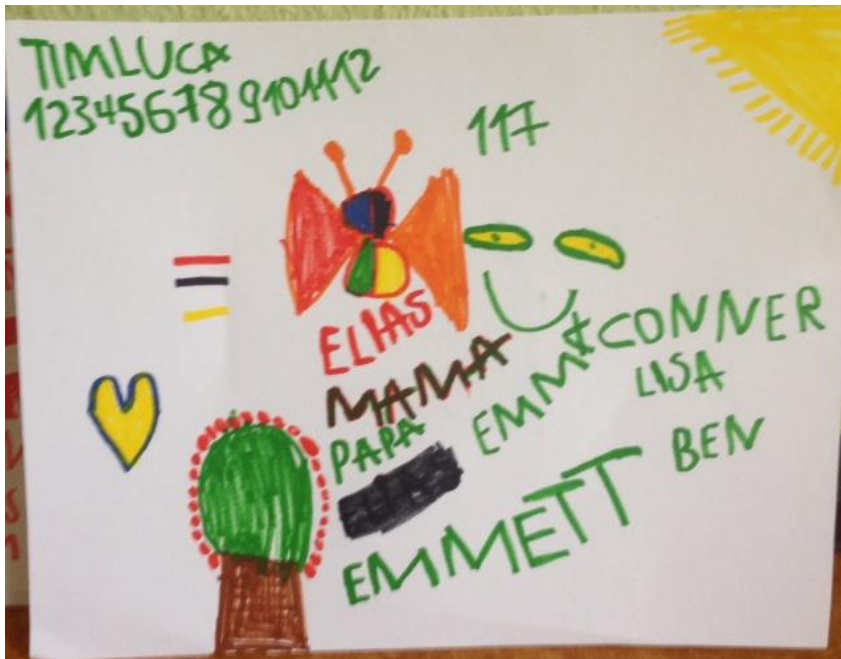 TIMLUCA
123456789101112
117
ELIAS
MAMA
PAPA
EMMA
CONNER
LISA
BEN
EMMETT